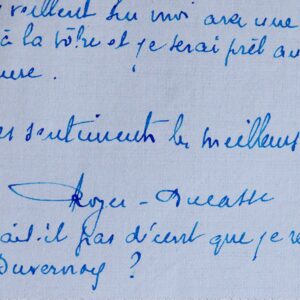 veillent sur moi avec une
à la vôtre et je serai prêt au
es sentiments les meilleurs
Roger-Ducasse
ait-il pas décent que je re
Duvernoy ?